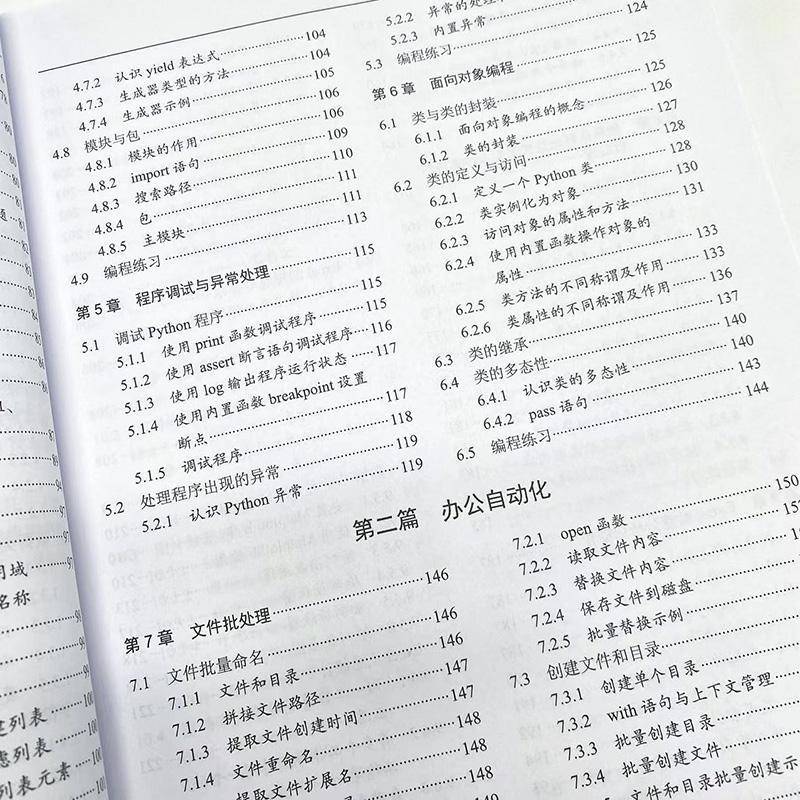 4.7.2 认识 yield 表达式 104
4.7.3 生成器类型的方法 104
4.7.4 生成器示例 105
4.8 模块与包 106
4.8.1 模块的作用 106
4.8.2 import 语句 109
4.8.3 搜索路径 110
4.8.4 包 111
4.8.5 主模块 111
4.9 编程练习 113
第 5 章 程序调试与异常处理 115
5.1 调试 Python 程序 115
5.1.1 使用 print 函数调试程序 115
5.1.2 使用 assert 断言语句调试程序 116
5.1.3 使用 log 输出程序运行状态 117
5.1.4 使用内置函数 breakpoint 设置
断点 117
5.1.5 调试程序 118
5.2 处理程序出现的异常 119
5.2.1 认识 Python 异常 119
5.2.2 异常的处理
5.2.3 内置异常
5.3 编程练习 124
第 6 章 面向对象编程 125
6.1 类与类的封装 125
6.1.1 面向对象编程的概念 126
6.1.2 类的封装 127
6.2 类的定义与访问 128
6.2.1 定义一个 Python 类 128
6.2.2 类实例化为对象 130
6.2.3 访问对象的属性和方法 131
6.2.4 使用内置函数操作对象的
属性 133
6.2.5 类方法的不同称谓及作用 133
6.2.6 类属性的不同称谓及作用 136
6.3 类的继承 137
6.4 类的多态性 140
6.4.1 认识类的多态性 140
6.4.2 pass 语句 143
6.5 编程练习 144
第二篇 办公自动化
第 7 章 文件批处理 146
7.1 文件批量命名 146
7.1.1 文件和目录 146
7.1.2 拼接文件路径 147
7.1.3 提取文件创建时间 147
7.1.4 文件重命名 148
提取文件扩展名 148
148
7.2.1 open 函数 150
7.2.2 读取文件内容
7.2.3 替换文件内容
7.2.4 保存文件到磁盘
7.2.5 批量替换示例
7.3 创建文件和目录
7.3.1 创建单个目录
7.3.2 with 语句与上下文管理
7.3.3 批量创建目录
7.3.4 批量创建文件
文件和目录批量创建示
名称
列表
列表
列表元素